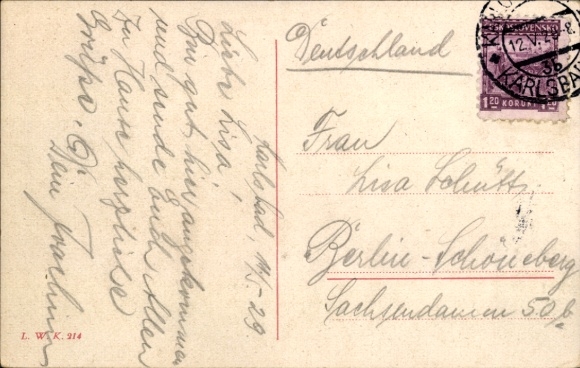 Karlsbad 11/5.-29.
Liebe Lisa!
Bin gut hier angekommen
und sende Euch Allen
Zu Hause herzliche
Grüße.
Dein Joachim
L. W. K. 214
Deutschland
Frau
Lisa Schütt
Berlin-Schöneberg
Sachsendamm 50b
ČESKOSLOVENSKO
1.20 KORUNY 1.20
12.V.29-8
3b
KARLSBAD